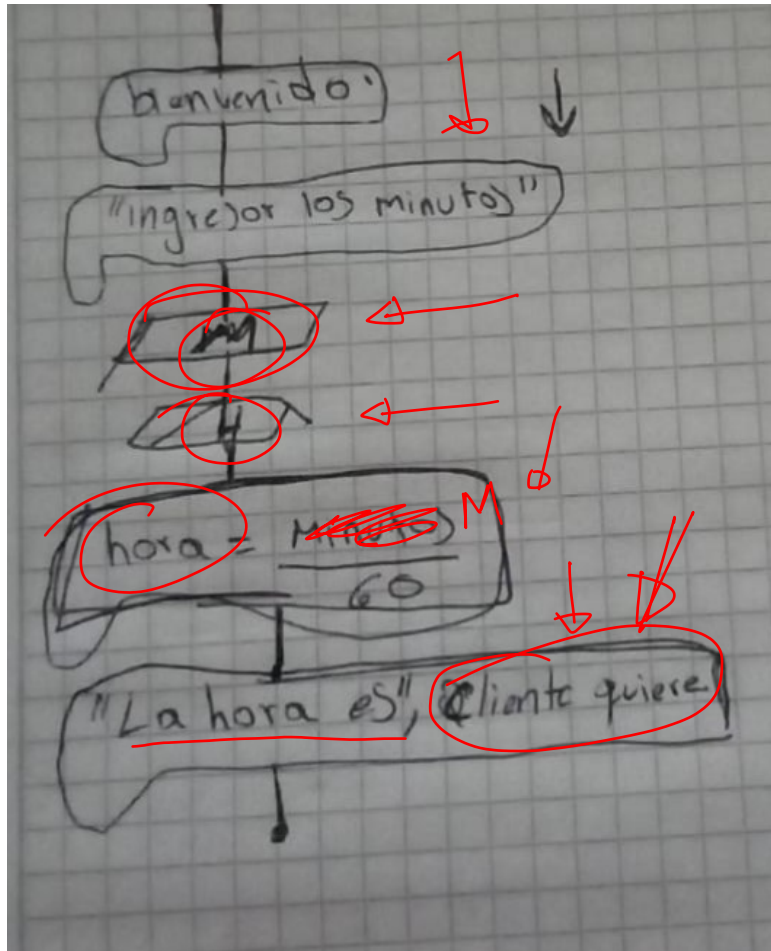 bienvenido
"ingresor los minutos"
M
H
hora = minutos M
60
"La hora es", Cliente quiere